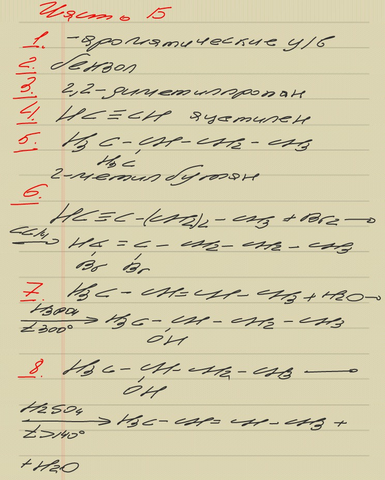 Часть Б
1. -ароматические у/в
2. бензол
3. 2,2-диметилпропан
4. HC≡CH ацетилен
5. H3C-CH-CH2-CH3
H3C
2-метилбутан
6.
HC≡C-(CH2)2-CH3 + Br2 →
CCl4 → HC=C-CH2-CH2-CH3
Br Br
7. H3C-CH=CH-CH3 + H2O →
H3PO4
t 300° → H3C-CH-CH2-CH3
OH
8. H3C-CH-CH2-CH3 →
OH
H2SO4
t>140° → H3C-CH=CH-CH3 +
+H2O